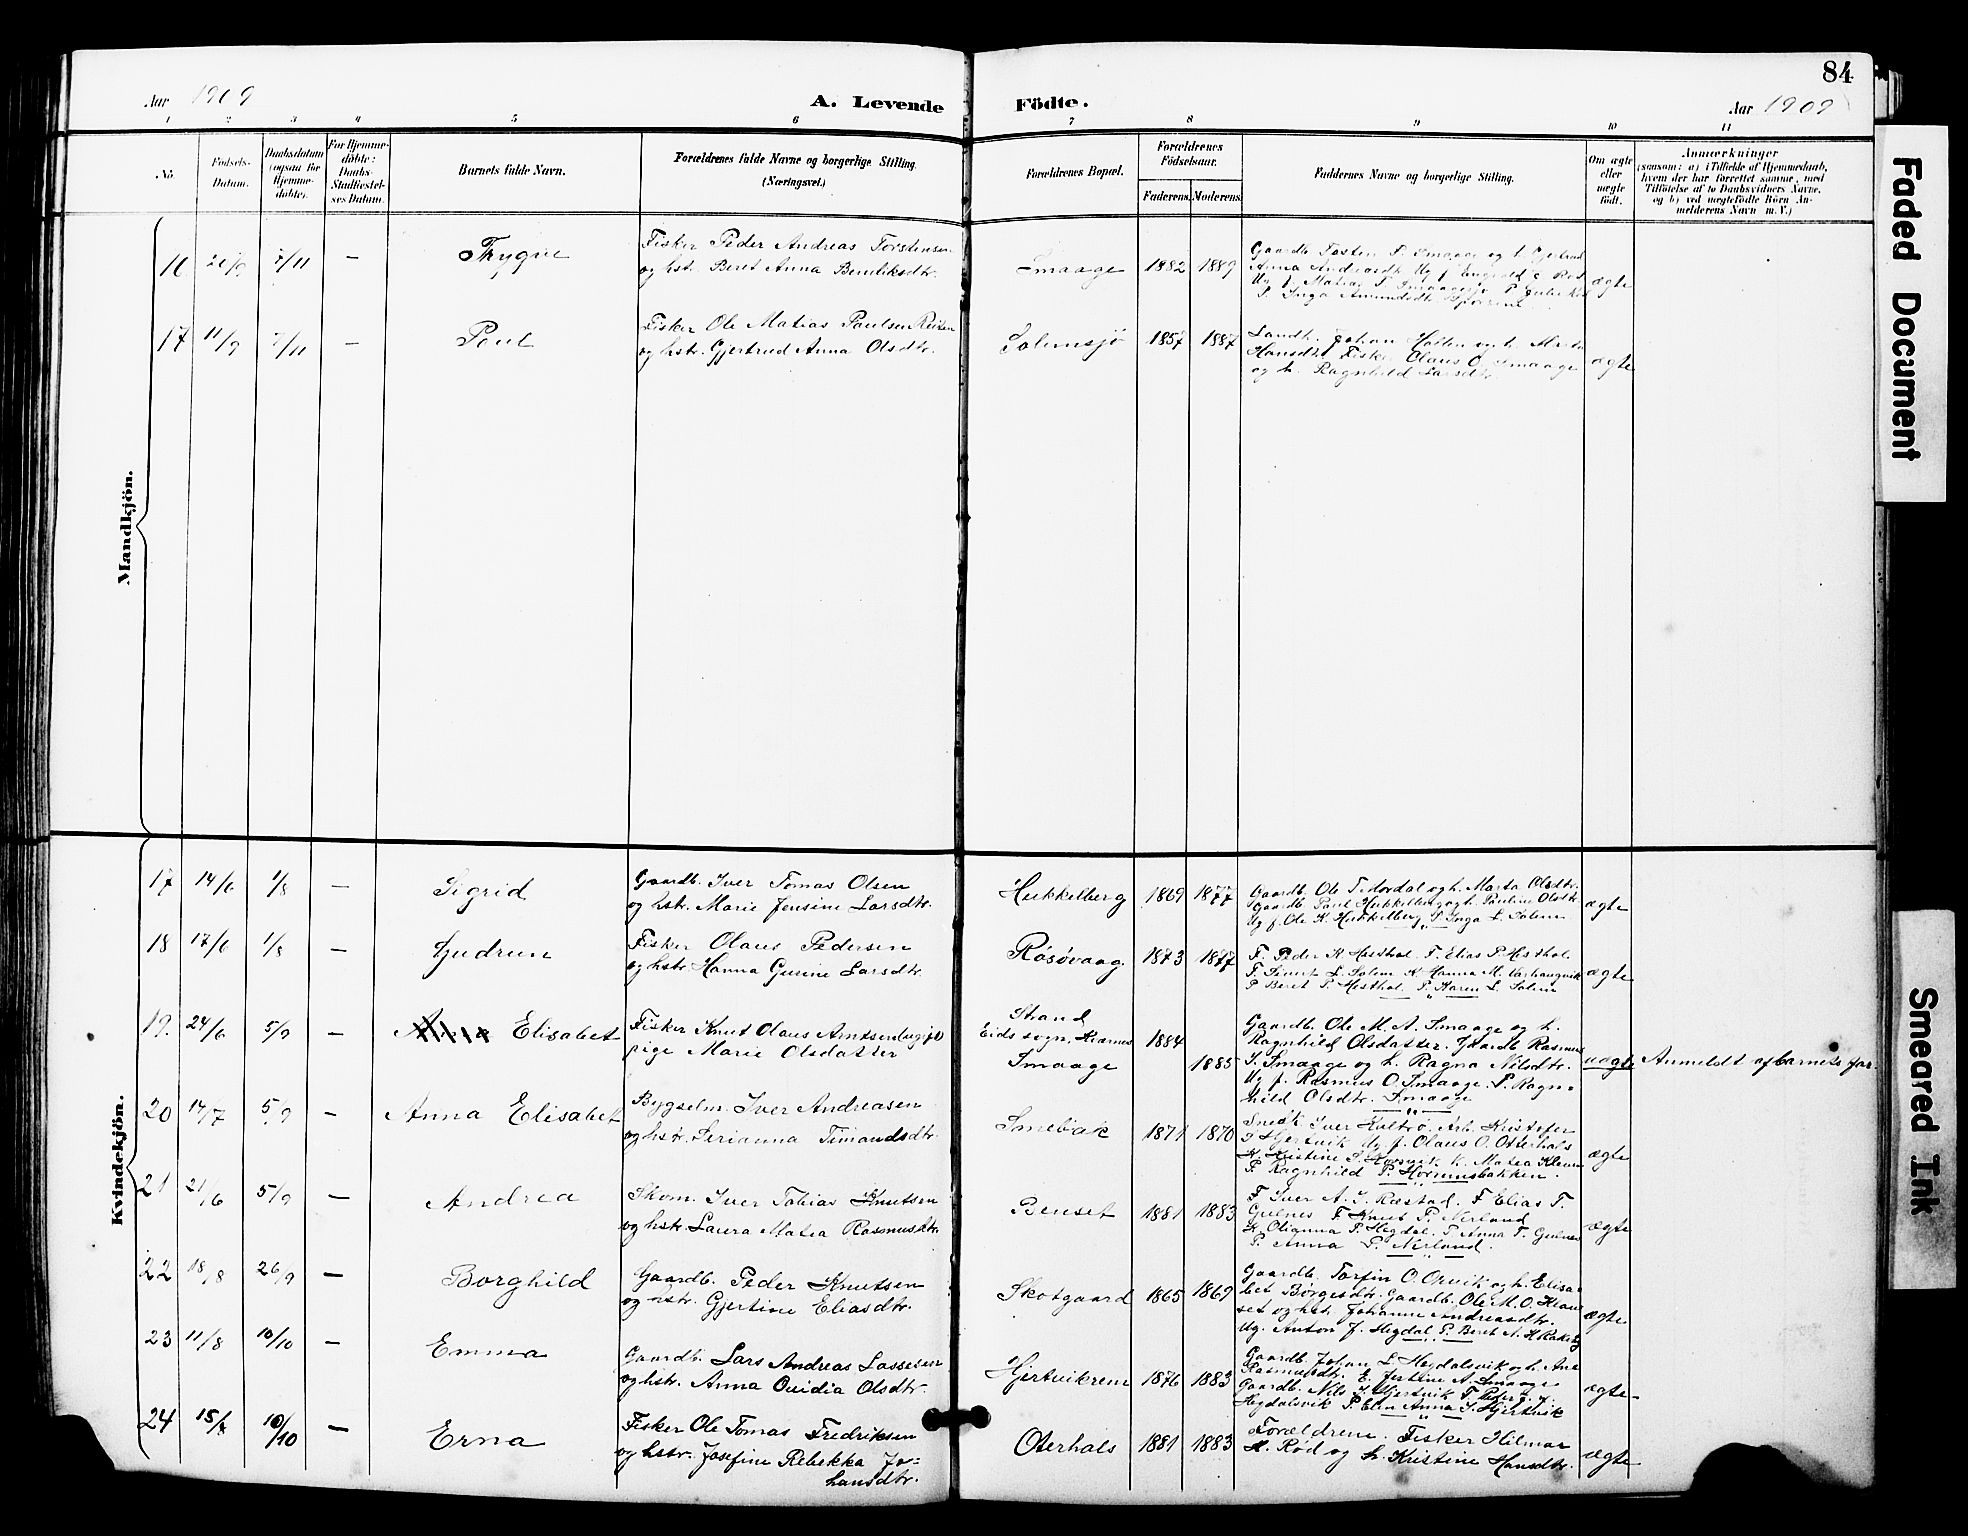 84
Aar 1909
A. Levende
Födte.
Aar 1909
1 2 3 4 5 6 7 8 9 10 11
No
Födsels-
Datum.
Daabsdatum
(ogsaa for
Hjemme-
döbte).
For Hjemme-
döbte:
Daabs-
Stadfæstel-
ses Datum.
Barnets fulde Navn.
Forældrenes fulde Navne og borgerlige Stilling.
(Næringsvei.)
Forældrenes Bopæl.
Forældrenes
Födselsaar.
Faderens.
Moderens.
Faddernes Navne og borgerlige Stilling.
Om ægte
eller
uægte
født.
Anmærkninger
(saasom: a) i Tilfælde af Hjemmedaab,
hvem der har forrettet samme, med
Tilföielse af to Daabsvidners Navne,
og b) ved uægtefödte Börn An-
melderens Navn m. V.)
Mandkjön.
16 7/11 — Trygve
Fisker Peder Andreas Torstensen
og hst. Beret Anna Bendiksdtr.
Smaage 1882 1889
ægte
17 11/9 7/11 — Paul
Fisker Ole Matias Paulsen Reiten
og hstr. Gjertrud Anna Olsdtr.
Solemsjö 1857 1887
Landh. Johan Hatlen og h.
Hansdtr. Fisker Olaus O. Smaage
og h. Ragnhild Larsdtr.
ægte
Kvindekjön.
17 14/6 1/8 — Sigrid
Gaardb. Iver Tomas Olsen
og hstr. Marie Jensine Larsdtr.
Hukkelberg 1869 1877
Gaardb. Ole T. Mordal og h. Marta Olsdtr.
Gaardb. Paul Hukkelberg og h. Pauline Olsdtr.
Ug f. Ole K. Hukkelberg P. Inga L. Solem
ægte
18 17/6 1/8 — Gudrun
Fisker Olaus Pedersen
og hstr. Hanna Gurine Larsdtr.
Røsøvaag 1873 1877
F. Peder K. Hesthol. F. Elias P. Hesthol.
F. Sivert L. Solem K. Hanna M. Varhaugvik
P. Beret P. Hesthol. P. Karen L. Solem
ægte
19. 24/6 5/9 — Elisabet
Fisker Knut Olaus Arntsen (ugift)
pige Marie Olsdatter
Strand
Eids sogn,
Smaage
1884
1885
Gaardb. Ole M. A. Smaage og h.
Ragnhild Olsdatter. Gaardb Rasmus
I. Smaage og h. Ragna Nilsdtr.
Ug f. Rasmus O. Smaage. P. Ragn-
hild Olsdtr. Smaage
uægte
Anmeldt af barnets far.
20 14/7 5/9 — Anna Elisabet
Bygselm. Iver Andreasen
og hstr. Serianna Timandsdtr.
Smebak 1871 1870
Snedk Iver Hultrø, Arb. Kristofer
Hjertvik Ug f. Olaus O. Oterhals
P. Ragnhild P. Hormmsbakken.
ægte
21 21/6 5/9 — Andrea
Skom. Iver Tobias Knutsen
og hstr. Laura Matea Rasmusdtr.
Beuset 1881 1883
F. Iver A. I. Ræstad. F. Elias T.
Gulnes F. Knut P. Nerland
K. Olianna P. Hegdal. P. Anna T. Gulnes
P. Anna P. Nerland.
ægte
22 18/8 26/9 — Borghild
Gaardb. Peder Knutsen
og hstr. Gjertine Eliasdtr.
Skotgaard 1865 1869
Gaardb. Torfin O. Orvik og h. Elisa-
bet Børgesdtr. Gaardb. Ole M. O.
set og hst. Johanne Andreasdtr.
Ug. Anton J. Hegdal. P. Beret A. H.
ægte
23 11/8 10/10 — Emma
Gaardb. Lars Andreas Lassesen
og hstr. Anna Ovidia Olsdtr.
Hjertvikrem 1876 1883
Gaardb. Johan L. Hegdalsvik og h. Ane
Rasmusdtr. E. Jertine A. Smaage
Gaardb. Nils I. Hjertvik F. Peder J.
Hegdalsvik P. Elen Anna I. Hjertvik
ægte
24 15/8 10/10 — Erna
Fisker Ole Tomas Fredriksen
og hstr. Josefine Rebekka Jo-
hansdtr.
Oterhals 1881 1883
Forældrene. Fisker Hilmar
H. Rød og h. Kristine Hansdtr.
ægte
Faded Document
Smeared Ink